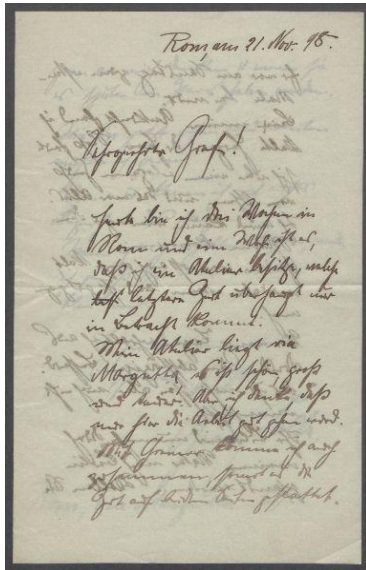 Rom, am 21. Nov. 98.
Sehrgeehrter Graf!
heute bin ich drei Wochen in
Rom und eine Woche ist es,
daß ich ein Atelier besitze, welch
letztere Zeit überhaupt nur
in Betracht kommt.
Mein Atelier liegt via
Margutta, es ist schön, groß
und    Aber ich denke, daß
   hier die Arbeit gut gehen wird.
Mit Greiner komme ich auch
zusammen, soweit es die
Zeit auf beiden Seiten gestattet.